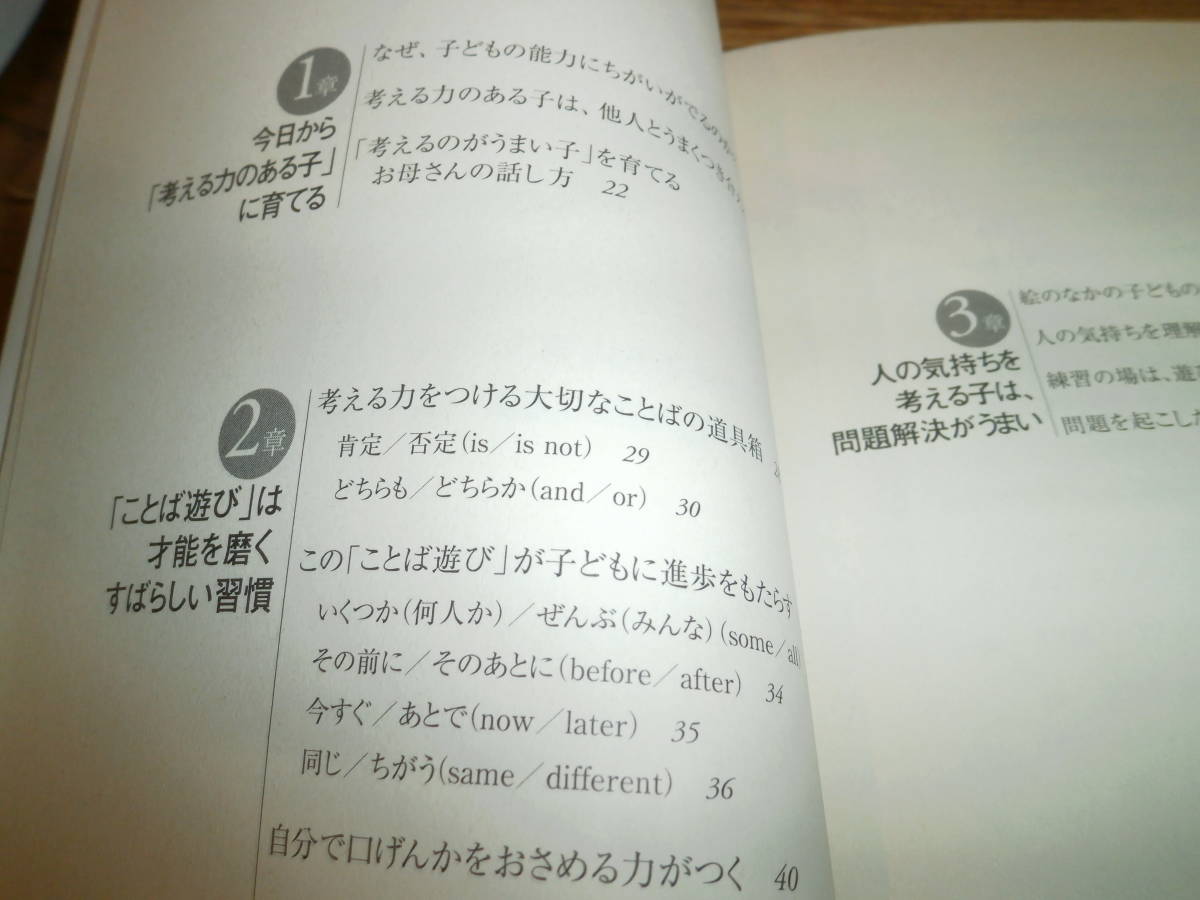 1章
今日から
「考える力のある子」
に育てる
なぜ、子どもの能力にちがいがでるのか
考える力のある子は、他人とうまくつき合
「考えるのがうまい子」を育てる
お母さんの話し方 22
2章
「ことば遊び」は
才能を磨く
すばらしい習慣
考える力をつける大切なことばの道具箱
肯定／否定(is／is not) 29
どちらも／どちらか(and／or) 30
この「ことば遊び」が子どもに進歩をもたらす
いくつか(何人か)／ぜんぶ(みんな)(some／all)
その前に／そのあとに(before／after) 34
今すぐ／あとで(now／later) 35
同じ／ちがう(same／different) 36
自分で口げんかをおさめる力がつく 40
3章
人の気持ちを
考える子は、
問題解決がうまい
絵のなかの子どもの
人の気持ちを理解
練習の場は、遊
問題を起こした